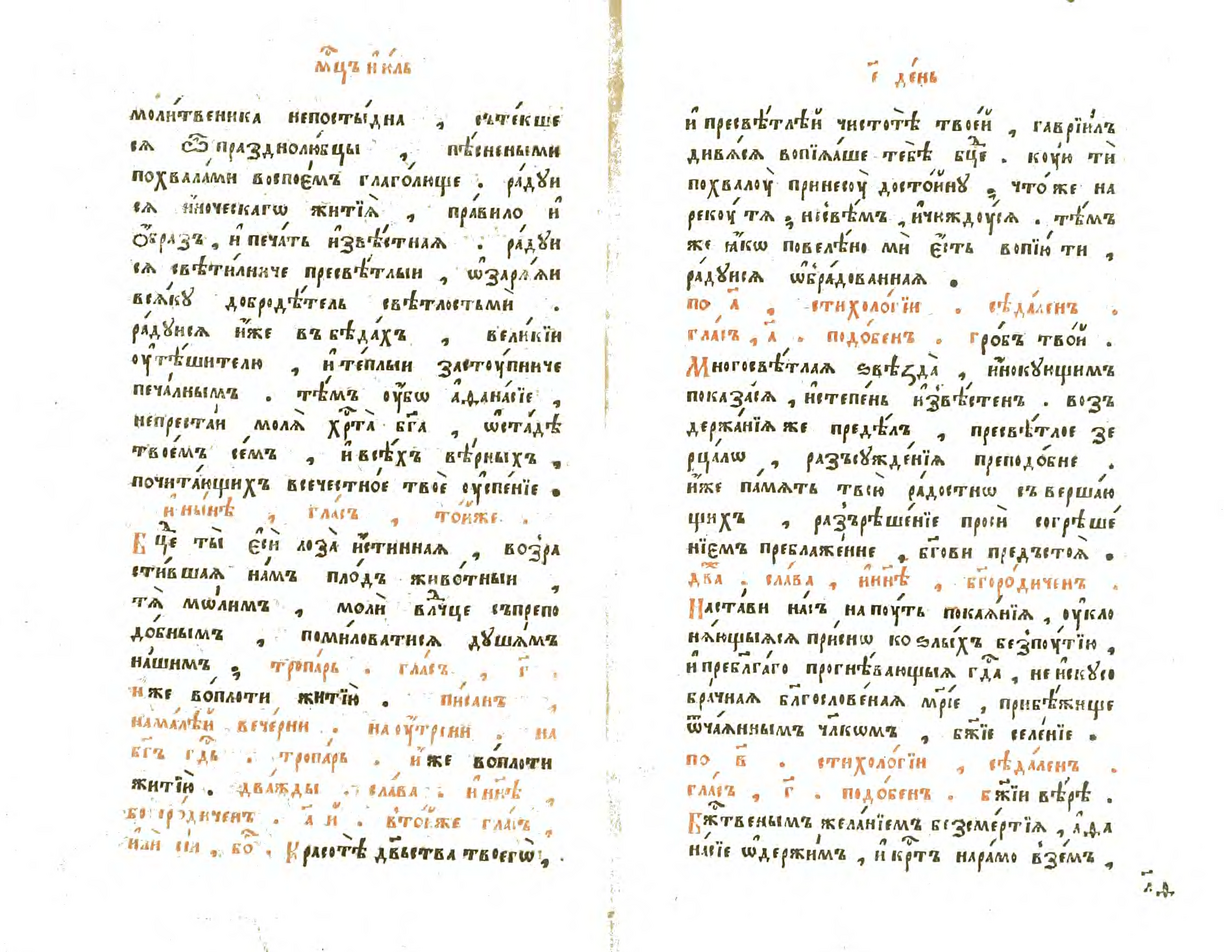 мⷭ҇цъ и҆ю́ль
моли́твеника непосты́дна , съте́кше
сѧ ѽ празднолю́бцы , пѣ́сньными
похвала́ми воспое́мъ глаго́люще . ра́дуи
сѧ и҆́ноческагѡ житїѧ̀ , пра́вило и҆
ѻ҆́бразъ , и҆ печа́ть и҆звѣ́стнаѧ . ра́дуи
сѧ свѣти́лниче пресвѣ́тлыи , ѡ҆зарѧ́ѧи
всѧ́ку добродѣ́тель свѣ́тлостьми .
ра́дуисѧ и҆́же въ бѣда́хъ , вели́кїи
оу҆тѣ́шителю , и҆ те́плыи засто́упниче
печа́лнымъ . тѣ́мъ оу҆́бѡ а҆ѳана́сїе ,
непреста́и молѧ̀ хрⷭ҇та̀ бг҃а , ѡ҆ ста́дѣ
твое́мъ се́мъ , и҆ всѣ́хъ вѣ́рныхъ ,
почита́ющихъ всечестно́е твоѐ оу҆спе́нїе .
и҆ ны́нѣ , гла́съ , то́иже .
Бцⷣе ты̀ є҆сѝ лоза̀ и҆́стиннаѧ , возра
сти́вшаѧ на́мъ пло́дъ живо́тныи ,
тѧ̀ мо́лимъ , молѝ влⷣчце съ препо
до́бнымъ , поми́ловатисѧ душа́мъ
на́шимъ , тропа́рь . гла́съ , г҃ .
и҆́же во́плоти житїю̀ . пи́санъ ,
на ма́лѣй вече́рни . на оу҆́трени . на
бг҃ъ гдⷭ҇ь . тропа́рь . и҆́же во́плоти
житїю̀ . два́жды . сла́ва . и҆ нн҃ѣ ,
богоро́диченъ . а҃ и҆ . в҆то́иже гла́съ ,
и҆лѝ сїѧ , бо . Красотѣ̀ дв҃ьства твоегѡ̀ ,
е҃ де́нь
и҆ пресвѣ́тлѣй чистотѣ̀ твое́й , гаврїи́лъ
дивѧ́сѧ вопїѧ́ше тебѣ̀ бцⷣе . ко́ую тѝ
похвалоу̀ принесоу̀ досто́йну , что́ же на
рекоу́ тѧ , не свѣ́мъ , и҆ чюжⷣоусѧ . тѣ́мъ
же ꙗ҆́кѡ повелѣ́но мѝ є҆́сть вопїю́ ти ,
ра́дуисѧ ѡ҆бра́дованнаѧ .
по а҃ , стихоло́гїи . сѣда́ленъ .
гла́съ , а҃ . подо́бенъ . гро́бъ тво́й .
Многосвѣ́тлаѧ ѕвѣзда̀ , и҆́нокующимъ
показа́сѧ , и҆ степе́нь и҆звѣ́стенъ . воз
держа́нїѧ же предѣ́лъ , пресвѣ́тлое зе
рца́лѡ , разъсужде́нїѧ преподо́бне .
и҆́же па́мѧть твою̀ ра́достїю съверша́ю
щихъ , разърѣше́нїе просѝ согрѣше́
нїемъ преблаже́нне , бг҃ови предъстоѧ̀ .
два̀ . сла́ва , и҆ нн҃ѣ , бг҃оро́диченъ .
Наста́ви на́съ на поу́ть покаѧ́нїѧ , оу҆кло
нѧ́ющыѧсѧ при́снѡ ко ѕлы́хъ безпоу́тїю ,
и҆ пребл҃га́го прогнѣ́вающыѧ гдⷭ҇а , неискусо
бра́чнаѧ бл҃гослове́наѧ мр҃і́е , прибѣ́жище
ѿча́ѧннымъ чл҃кѡмъ , бж҃їе селе́нїе .
по в҃ . стихоло́гїи , сѣда́ленъ .
гла́съ , г҃ . подо́бенъ . бж҃їи вѣ́рѣ .
Бжⷭ҇твенымъ жела́нїемъ безсме́ртїѧ , а҆ѳа
на́сїе ѡ҆держи́мъ , и҆ крⷭ҇тъ на ра́мо взе́мъ ,